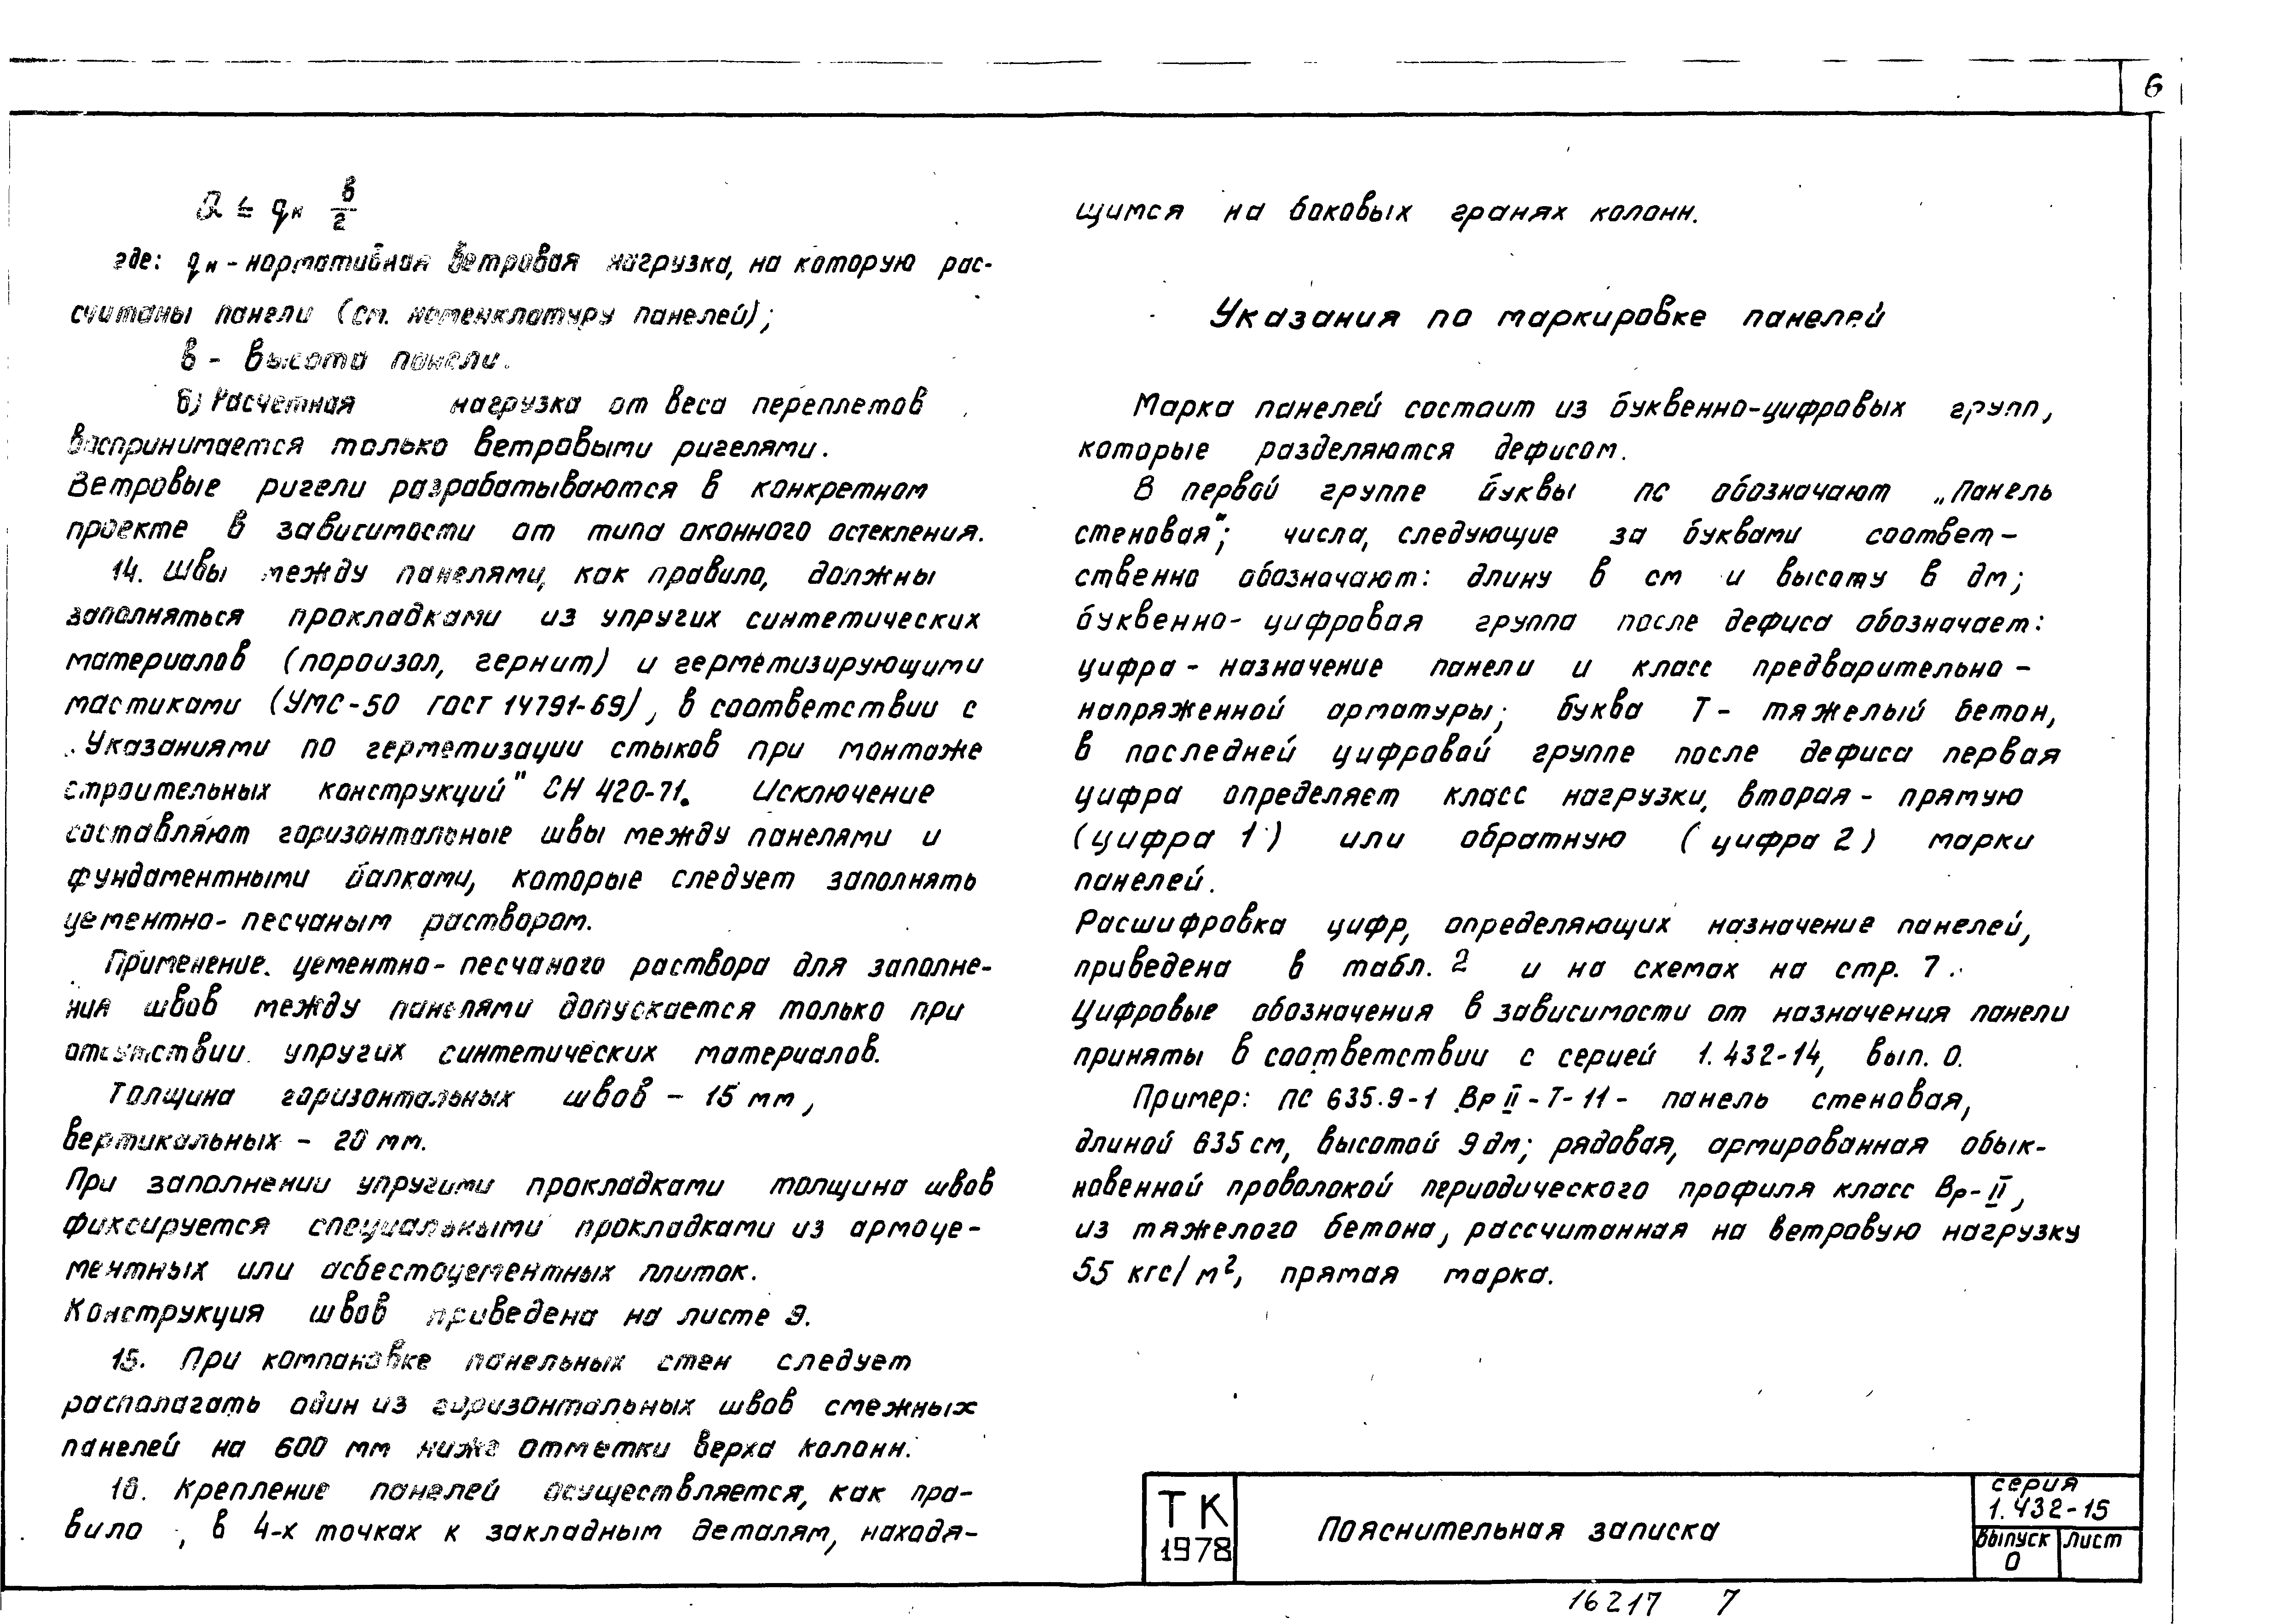 6
Q ≤ qн в/2
где: qн - нормативная ветровая нагрузка, на которую рас-
считаны панели (см. номенклатуру панелей);
в - высота панели.
б) Расчетная нагрузка от веса переплетов
воспринимается только ветровыми ригелями.
Ветровые ригели разрабатываются в конкретном
проекте в зависимости от типа оконного остекления.
14. Швы между панелями, как правило, должны
заполняться прокладками из упругих синтетических
материалов (пороизол, гернит) и герметизирующими
мастиками (УМС-50 гост 14791-69), в соответствии с
„Указаниями по герметизации стыков при монтаже
строительных конструкций" СН 420-71. Исключение
составляют горизонтальные швы между панелями и
фундаментными балками, которые следует заполнять
цементно-песчаным раствором.
Применение цементно-песчаного раствора для заполне-
ния швов между панелями допускается только при
отсутствии упругих синтетических материалов.
Толщина горизонтальных швов - 15 мм,
вертикальных - 20 мм.
При заполнении упругими прокладками толщина швов
фиксируется специальными прокладками из армоце-
ментных или асбестоцементных плиток.
Конструкция швов приведена на листе 9.
15. При компановке панельных стен следует
располагать один из горизонтальных швов смежных
панелей на 600 мм ниже отметки верха колонн.
16. Крепление панелей осуществляется, как пра-
вило, в 4-х точках к закладным деталям, находя-
щимся на боковых гранях колонн.
Указания по маркировке панелей
Марка панелей состоит из буквенно-цифровых групп,
которые разделяются дефисом.
В первой группе буквы ПС обозначают „Панель
стеновая"; числа, следующие за буквами соответ-
ственно обозначают: длину в см и высоту в дм;
буквенно-цифровая группа после дефиса обозначает:
цифра - назначение панели и класс предварительно-
напряженной арматуры; буква Т - тяжелый бетон,
в последней цифровой группе после дефиса первая
цифра определяет класс нагрузки, вторая - прямую
(цифра 1) или обратную (цифра 2) марки
панелей.
Расшифровка цифр, определяющих назначение панелей,
приведена в табл. 2 и на схемах на стр. 7.
Цифровые обозначения в зависимости от назначения панели
приняты в соответствии с серией 1.432-14, вып. 0.
Пример: ПС 635.9-1 Вр II-Т-11- панель стеновая,
длиной 635 см, высотой 9 дм; рядовая, армированная обык-
новенной проволокой периодического профиля класс Вр-II,
из тяжелого бетона, рассчитанная на ветровую нагрузку
55 кгс/м², прямая марка.
ТК
1978
Пояснительная записка
серия
1.432-15
Выпуск
0
Лист
16217 7